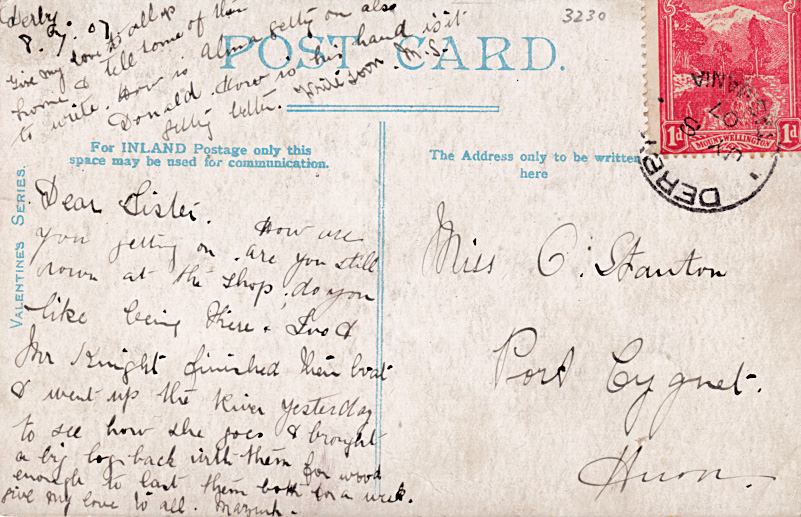 Derby.
8.7.07
Give my love to all at
home & tell some of them
to write. How is Alma getting on also
Donald. How is his hand is it
getting better. Write soon. M.S.
3230
POST CARD.
For INLAND Postage only this
space may be used for communication.
The Address only to be written
here
VALENTINE'S SERIES.
1d MOUNT WELLINGTON 1d
DERBY
07
TASMANIA
Dear Sister. How are
you getting on. are you still
down at the shop, do you
like being there.
Mr Knight finished their boat
& went up the River yesterday
to see how she goes & brought
a big log back with them for wood
enough to last them both for a week.
give my love to all.
Miss C. Stanton
Port Cygnet.
Huon.